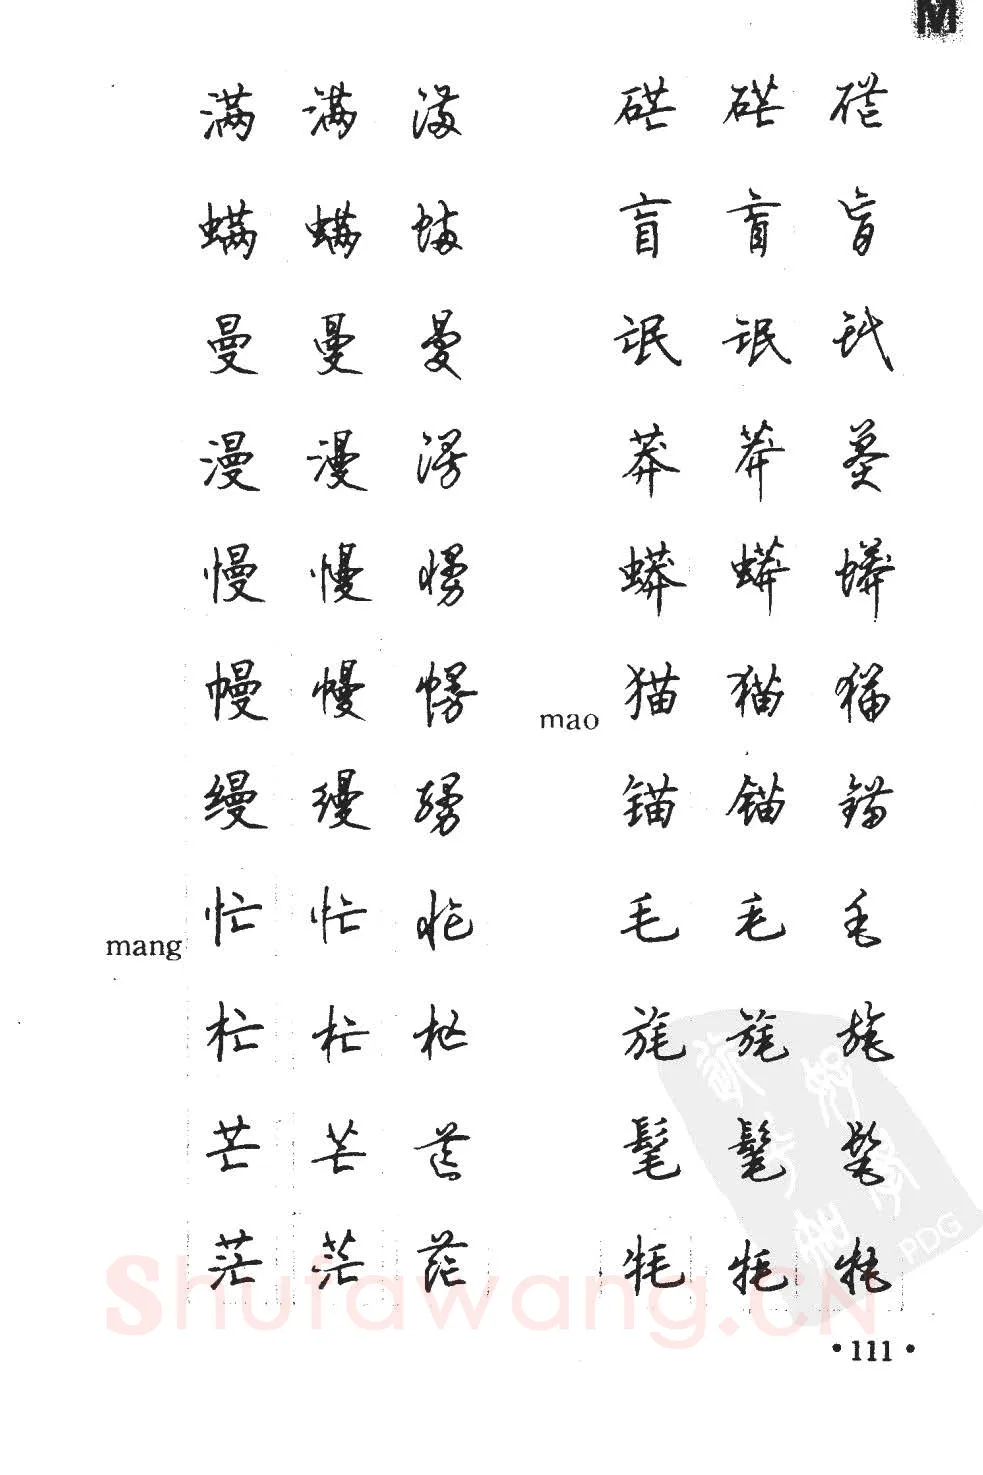 M
满 满 满
螨 螨 螨
曼 曼 曼
漫 漫 漫
慢 慢 慢
幔 幔 幔
缦 缦 缦
mang 忙 忙 忙
杧 杧 杧
芒 芒 芒
茫 茫 茫
硭 硭 硭
盲 盲 盲
氓 氓 氓
莽 莽 莽
蟒 蟒 蟒
mao 猫 猫 猫
锚 锚 锚
毛 毛 毛
旄 旄 旄
髦 髦 髦
牦 牦 牦
PDG
Shufawang.CN
·111·